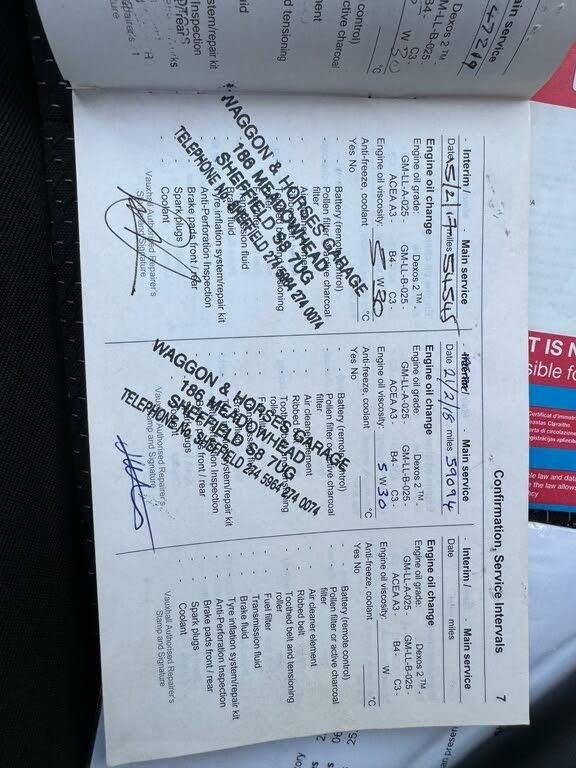 Confirmation, Service Intervals
7
Interim / · Main service
Date 5/2/17 miles 54545
Engine oil change
Engine oil grade: Dexos 2 ™ -
GM-LL-A-025 - GM-LL-B-025 -
ACEA A3 - B4 - C3 -
Engine oil viscosity: 5 W 30
Anti-freeze, coolant °C
Yes No
Battery (remote control)
Pollen filter or active charcoal
filter
Brake fluid
Tyre inflation system/repair kit
Anti-Perforation Inspection
Brake pads front / rear
Spark plugs
Coolant
Vauxhall Authorised Repairer's
Stamp and Signature
WAGGON & HORSES GARAGE
186 MEADOWHEAD
SHEFFIELD S8 7UG
TELEPHONE No. SHEFFIELD 274 5964 274 0074
Interim / · Main service
Date 21/2/18 miles 59094
Engine oil change
Engine oil grade: Dexos 2 ™ -
GM-LL-A-025 - GM-LL-B-025 -
ACEA A3 - B4 - C3 -
Engine oil viscosity: 5 W 30
Anti-freeze, coolant °C
Yes No
Battery (remote control)
Pollen filter or active charcoal
filter
Air cleaner element
Ribbed belt
Vauxhall Authorised Repairer's
Stamp and Signature
WAGGON & HORSES GARAGE
186, MEADOWHEAD
SHEFFIELD S8 7UG
TELEPHONE No. SHEFFIELD 274 5964 274 0074
Interim / · Main service
Date miles
Engine oil change
Engine oil grade: Dexos 2 ™ -
GM-LL-A-025 - GM-LL-B-025 -
ACEA A3 - B4 - C3 -
Engine oil viscosity: W
Anti-freeze, coolant °C
Yes No
Battery (remote control)
Pollen filter or active charcoal
filter
Air cleaner element
Ribbed belt
Toothed belt and tensioning
roller
Fuel filter
Transmission fluid
Brake fluid
Tyre inflation system/repair kit
Anti-Perforation Inspection
Brake pads front / rear
Spark plugs
Coolant
Vauxhall Authorised Repairer's
Stamp and Signature
ain service
47219
Dexos 2 ™ -
GM-LL-B-025 -
B4 - C3 -
W 30
°C
control)
ctive charcoal
element
nd tensioning
ystem/repair kit
Inspection
/ rear
T IS N
sible fo